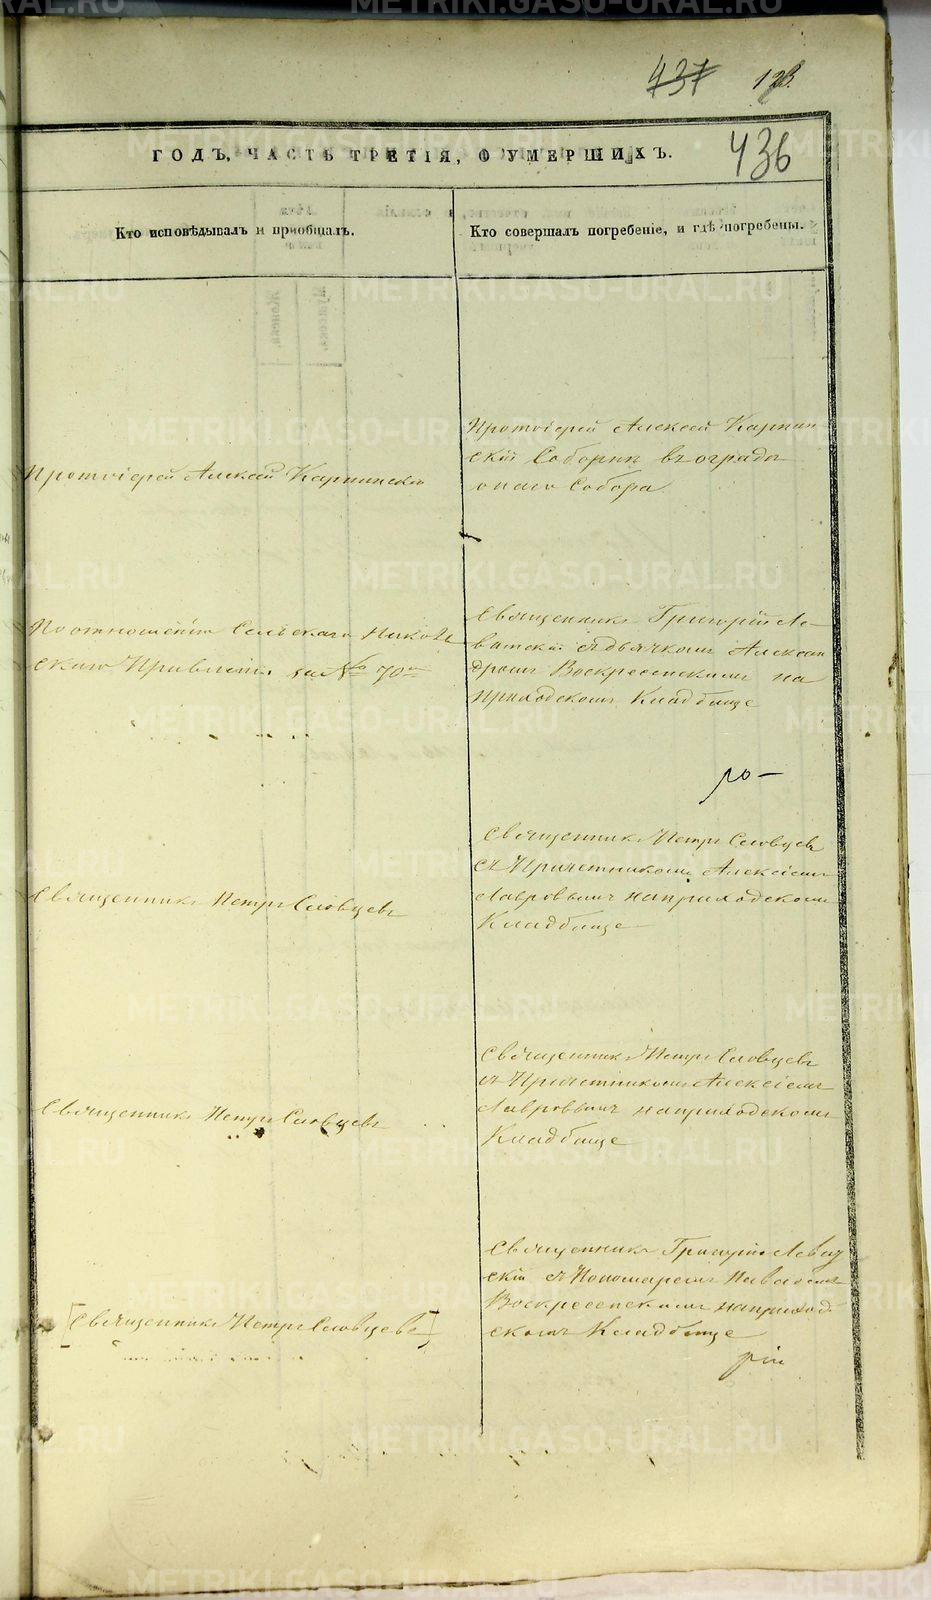 437 123.
436
ГОДЪ, ЧАСТЬ ТРЕТІЯ, О УМЕРШИХЪ.
Кто исповѣдывалъ и пріобщалъ.
Кто совершалъ погребеніе, и гдѣ погребены.
Протоіерей Алексей Карпинскій
Протоіерей Алексей Карпин
скій Соборнѣ въ оградѣ
онаго Собора
По отношенію Сельскаго Никол
скаго Правленія за № 70м
Священникъ Григорій Ле-
витскій съ дьячкомъ Алексан
дромъ Воскресенскимъ на
приходскомъ Кладбище
Священникъ Петръ Словцевъ
Священникъ Петръ Словцевъ
съ Причетникомъ Алексіемъ
Лавровымъ на приходскомъ
Кладбище
Священникъ Петръ Словцевъ
Священникъ Петръ Словцевъ
съ Причетникомъ Алексіемъ
Лавровымъ на приходскомъ
Кладбище
[Священникъ Петръ Словцевъ]
Священникъ Григорій Левит
скій съ Пономаремъ
Воскресенскимъ на приход
скомъ Кладбище
METRIKI.GASO-URAL.RU